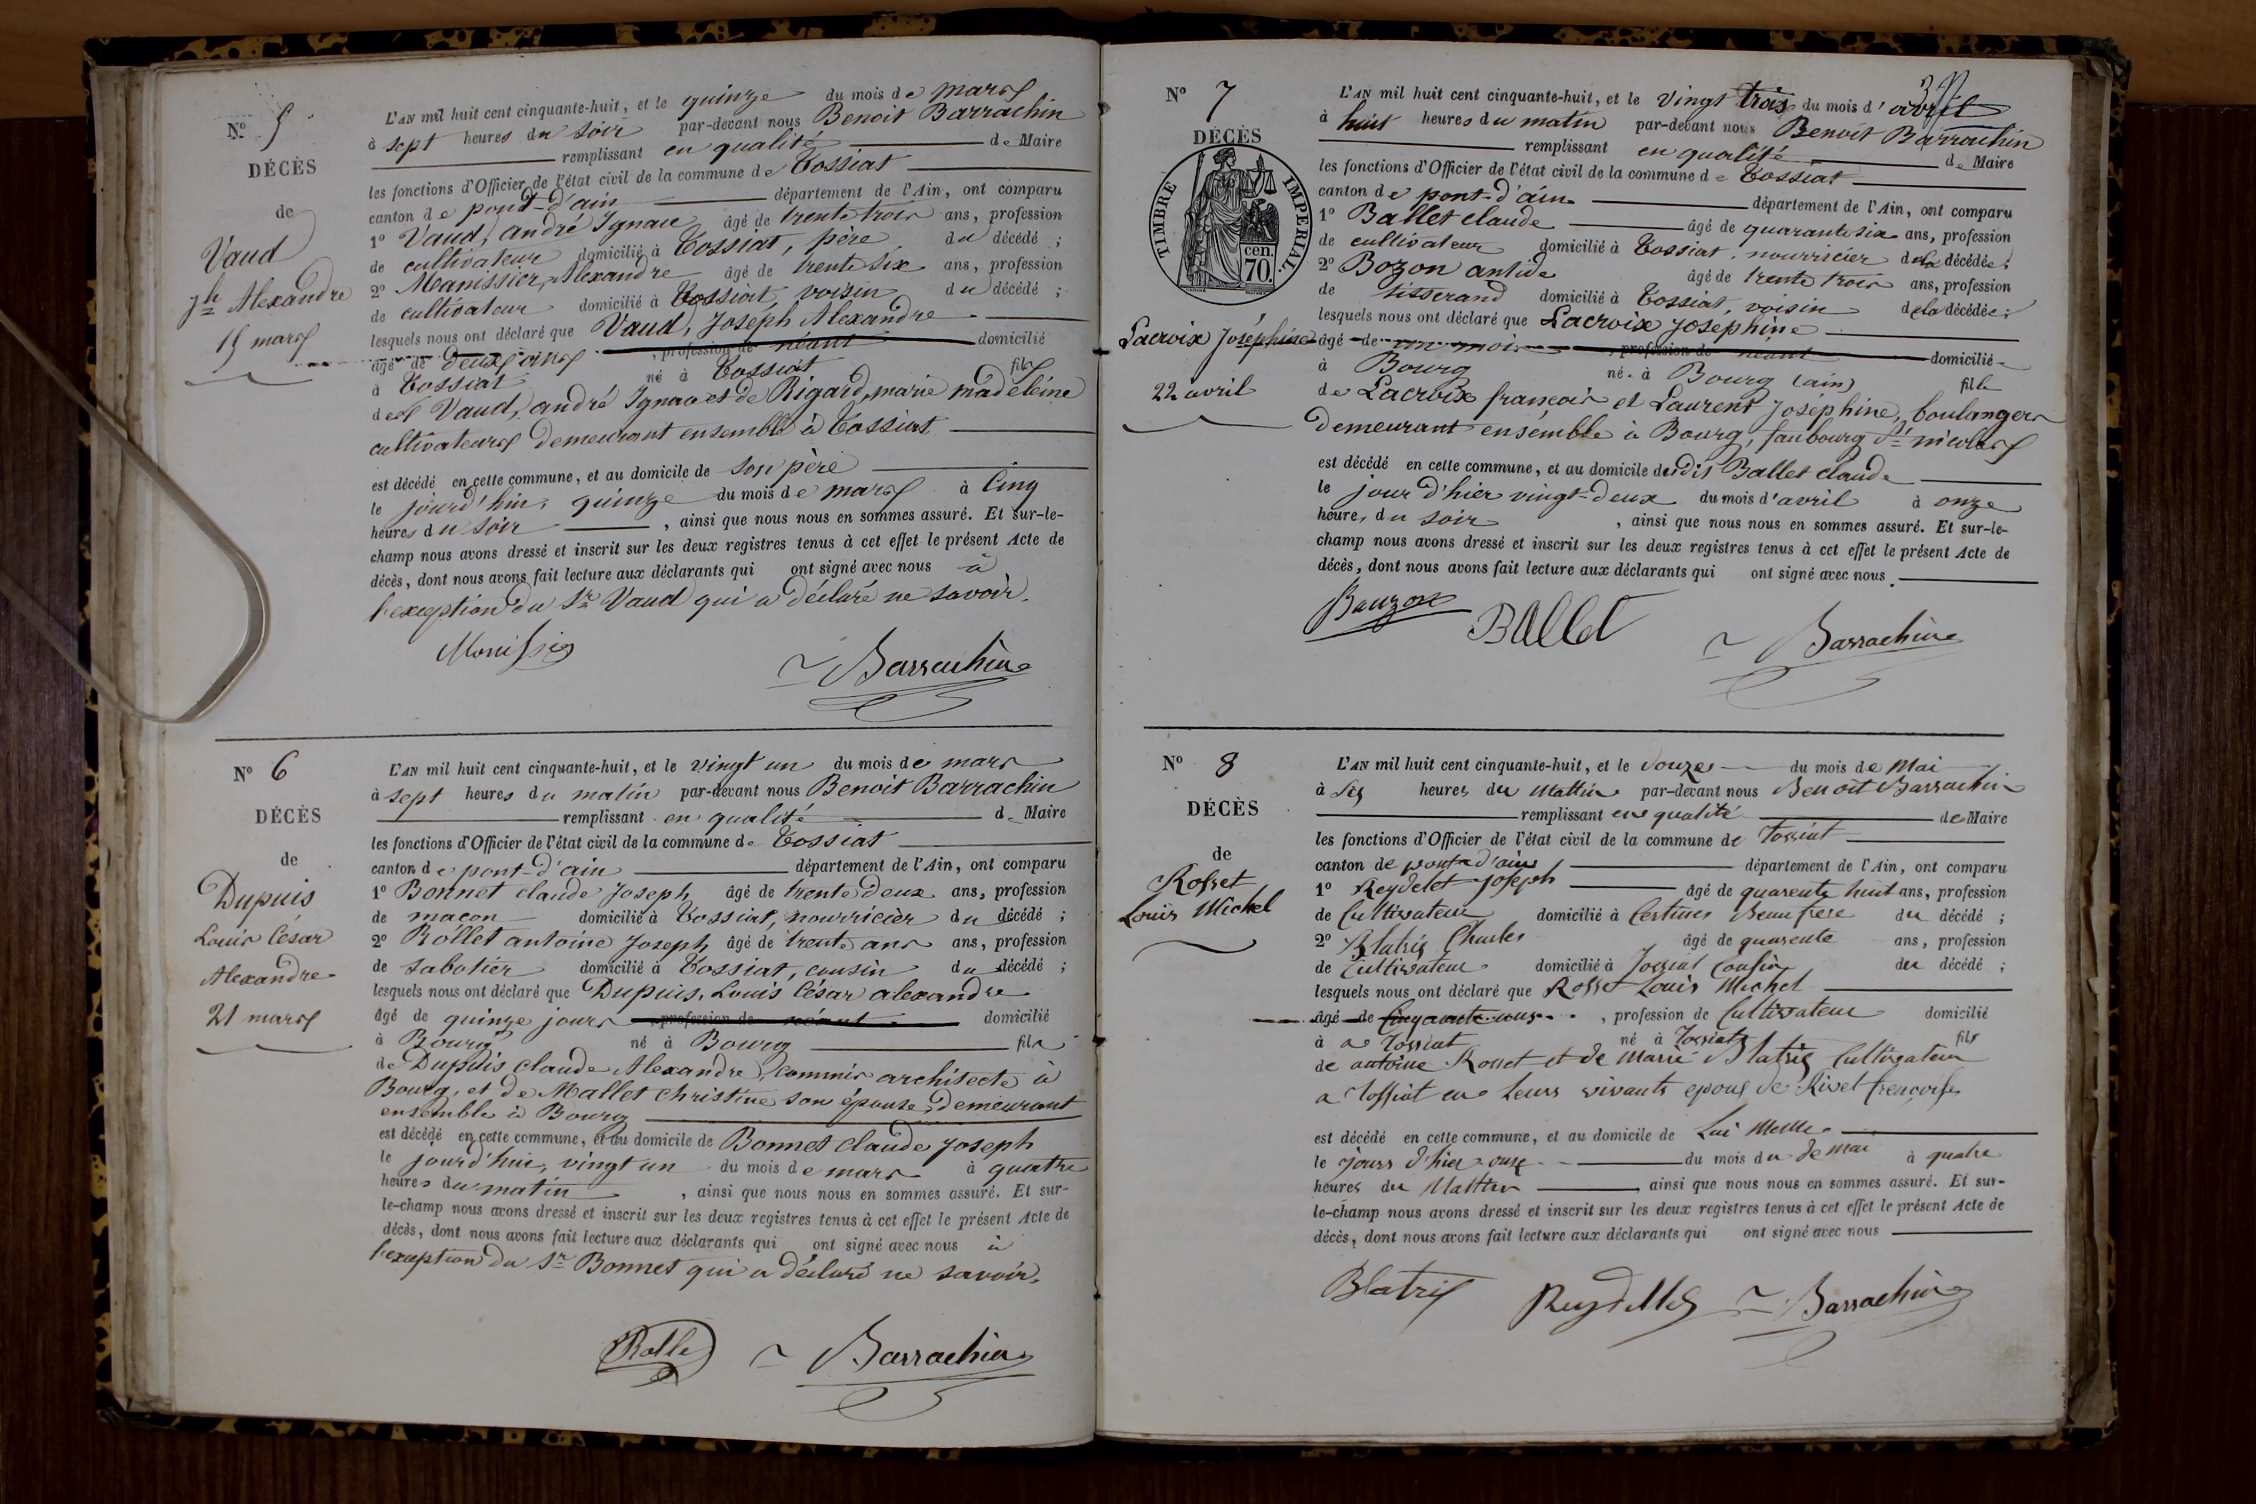 N° 5
DÉCÈS
de
Vaud
Jh Alexandre
15 mars
L'AN mil huit cent cinquante-huit, et le quinze du mois de mars
à sept heures du soir par-devant nous Benoit Barrachin
remplissant en qualité de Maire
les fonctions d'Officier de l'état civil de la commune de Tossiat
canton de pont-d'ain département de l'Ain, ont comparu
1° Vaud, andré Ignace âgé de trente trois ans, profession
de cultivateur domicilié à Tossiat, père du décédé ;
2° Manissier, Alexandre âgé de trente six ans, profession
de cultivateur domicilié à Tossiat, voisin du décédé ;
lesquels nous ont déclaré que Vaud, Joséph Alexandre
âgé de deux ans, profession de néant domicilié
à Tossiat né à Tossiat fils
des Vaud, andré Ignace et de Rigard, marie madeleine
cultivateurs demeurant ensemble à Tossiat
est décédé en cette commune, et au domicile de son père
le jourd'hui, quinze du mois de mars à cinq
heures du soir, ainsi que nous nous en sommes assuré. Et sur-le-
champ nous avons dressé et inscrit sur les deux registres tenus à cet effet le présent Acte de
décès, dont nous avons fait lecture aux déclarants qui ont signé avec nous à
l'exception du Sr Vaud qui a déclaré ne savoir.
Manissier
Barrachin
N° 6
DÉCÈS
de
Dupuis
Louis César
Alexandre
21 mars
L'AN mil huit cent cinquante-huit, et le vingt un du mois de mars
à sept heures du matin par-devant nous Benoit Barrachin
remplissant en qualité de Maire
les fonctions d'Officier de l'état civil de la commune de Tossiat
canton de pont-d'ain département de l'Ain, ont comparu
1° Bonnet claude Joseph âgé de trente deux ans, profession
de maçon domicilié à Tossiat, nourricier du décédé ;
2° Rollet antoine Joseph âgé de trente ans ans, profession
de sabotier domicilié à Tossiat, cousin du décédé ;
lesquels nous ont déclaré que Dupuis, Louis César alexandre
âgé de quinze jours, profession de néant domicilié
à Bourg né à Bourg fils
de Dupuis claude Alexandre, commis architecte à
Bourg, et de Mallet christine son épouse, demeurant
ensemble à Bourg
est décédé en cette commune, et au domicile de Bonnet claude Joseph
le jourd'hui, vingt un du mois de mars à quatre
heures du matin, ainsi que nous nous en sommes assuré. Et sur-
le-champ nous avons dressé et inscrit sur les deux registres tenus à cet effet le présent Acte de
décès, dont nous avons fait lecture aux déclarants qui ont signé avec nous à
l'exception du Sr Bonnet qui a déclaré ne savoir.
Rolle
Barrachin
N° 7
DÉCÈS
TIMBRE IMPERIAL.
70 cen.
Lacroix Joséphine
22 avril
L'AN mil huit cent cinquante-huit, et le vingt trois du mois d'avril
à huit heures du matin par-devant nous Benoit Barrachin
remplissant en qualité de Maire
les fonctions d'Officier de l'état civil de la commune de Tossiat
canton de pont-d'ain département de l'Ain, ont comparu
1° Ballet claude âgé de quarante six ans, profession
de cultivateur domicilié à Tossiat, nourricier de la décédée ;
2° Bozon antide âgé de trente trois ans, profession
de tisserand domicilié à Tossiat, voisin de la décédée ;
lesquels nous ont déclaré que Lacroix Josephine
âgé de un mois, profession de néant domicilié
à Bourg né à Bourg (ain) fille
de Lacroix françois et Laurent Joséphine, boulangers
demeurant ensemble à Bourg, faubourg St nicolas
est décédé en cette commune, et au domicile dudit Ballet claude
le jour d'hier vingt-deux du mois d'avril à onze
heures du soir, ainsi que nous nous en sommes assuré. Et sur-le-
champ nous avons dressé et inscrit sur les deux registres tenus à cet effet le présent Acte de
décès, dont nous avons fait lecture aux déclarants qui ont signé avec nous.
Bauzon
BAllet
Barrachin
N° 8
DÉCÈS
de
Rosset
Louis Michel
L'AN mil huit cent cinquante-huit, et le douze du mois de Mai
à Sis heures du Mattin par-devant nous Benoit Barrachin
remplissant en qualité de Maire
les fonctions d'Officier de l'état civil de la commune de Tossiat
canton de pont d'ain département de l'Ain, ont comparu
1° Reydelet Joseph âgé de quarente huit ans, profession
de Cultivateur domicilié à Certines Beaufrere du décédé ;
2° Blatris Charles âgé de quarente ans, profession
de Cultivateur domicilié à Tossiat Cousin du décédé ;
lesquels nous ont déclaré que Rosset Louis Michel
âgé de Cinquante, profession de Cultivateur domicilié
à a Tossiat né à Tossiat fils
de antoine Rosset et de Marie Blatris Cultivateur
a Tossiat en leurs vivants epous de Rivel françoise
est décédé en cette commune, et au domicile de Lui Meme
le jours d'hier onze du mois du de mai à quatre
heures du Mattin, ainsi que nous nous en sommes assuré. Et sur-
le-champ nous avons dressé et inscrit sur les deux registres tenus à cet effet le présent Acte de
décès, dont nous avons fait lecture aux déclarants qui ont signé avec nous
Blatris
Reydellet
Barrachin